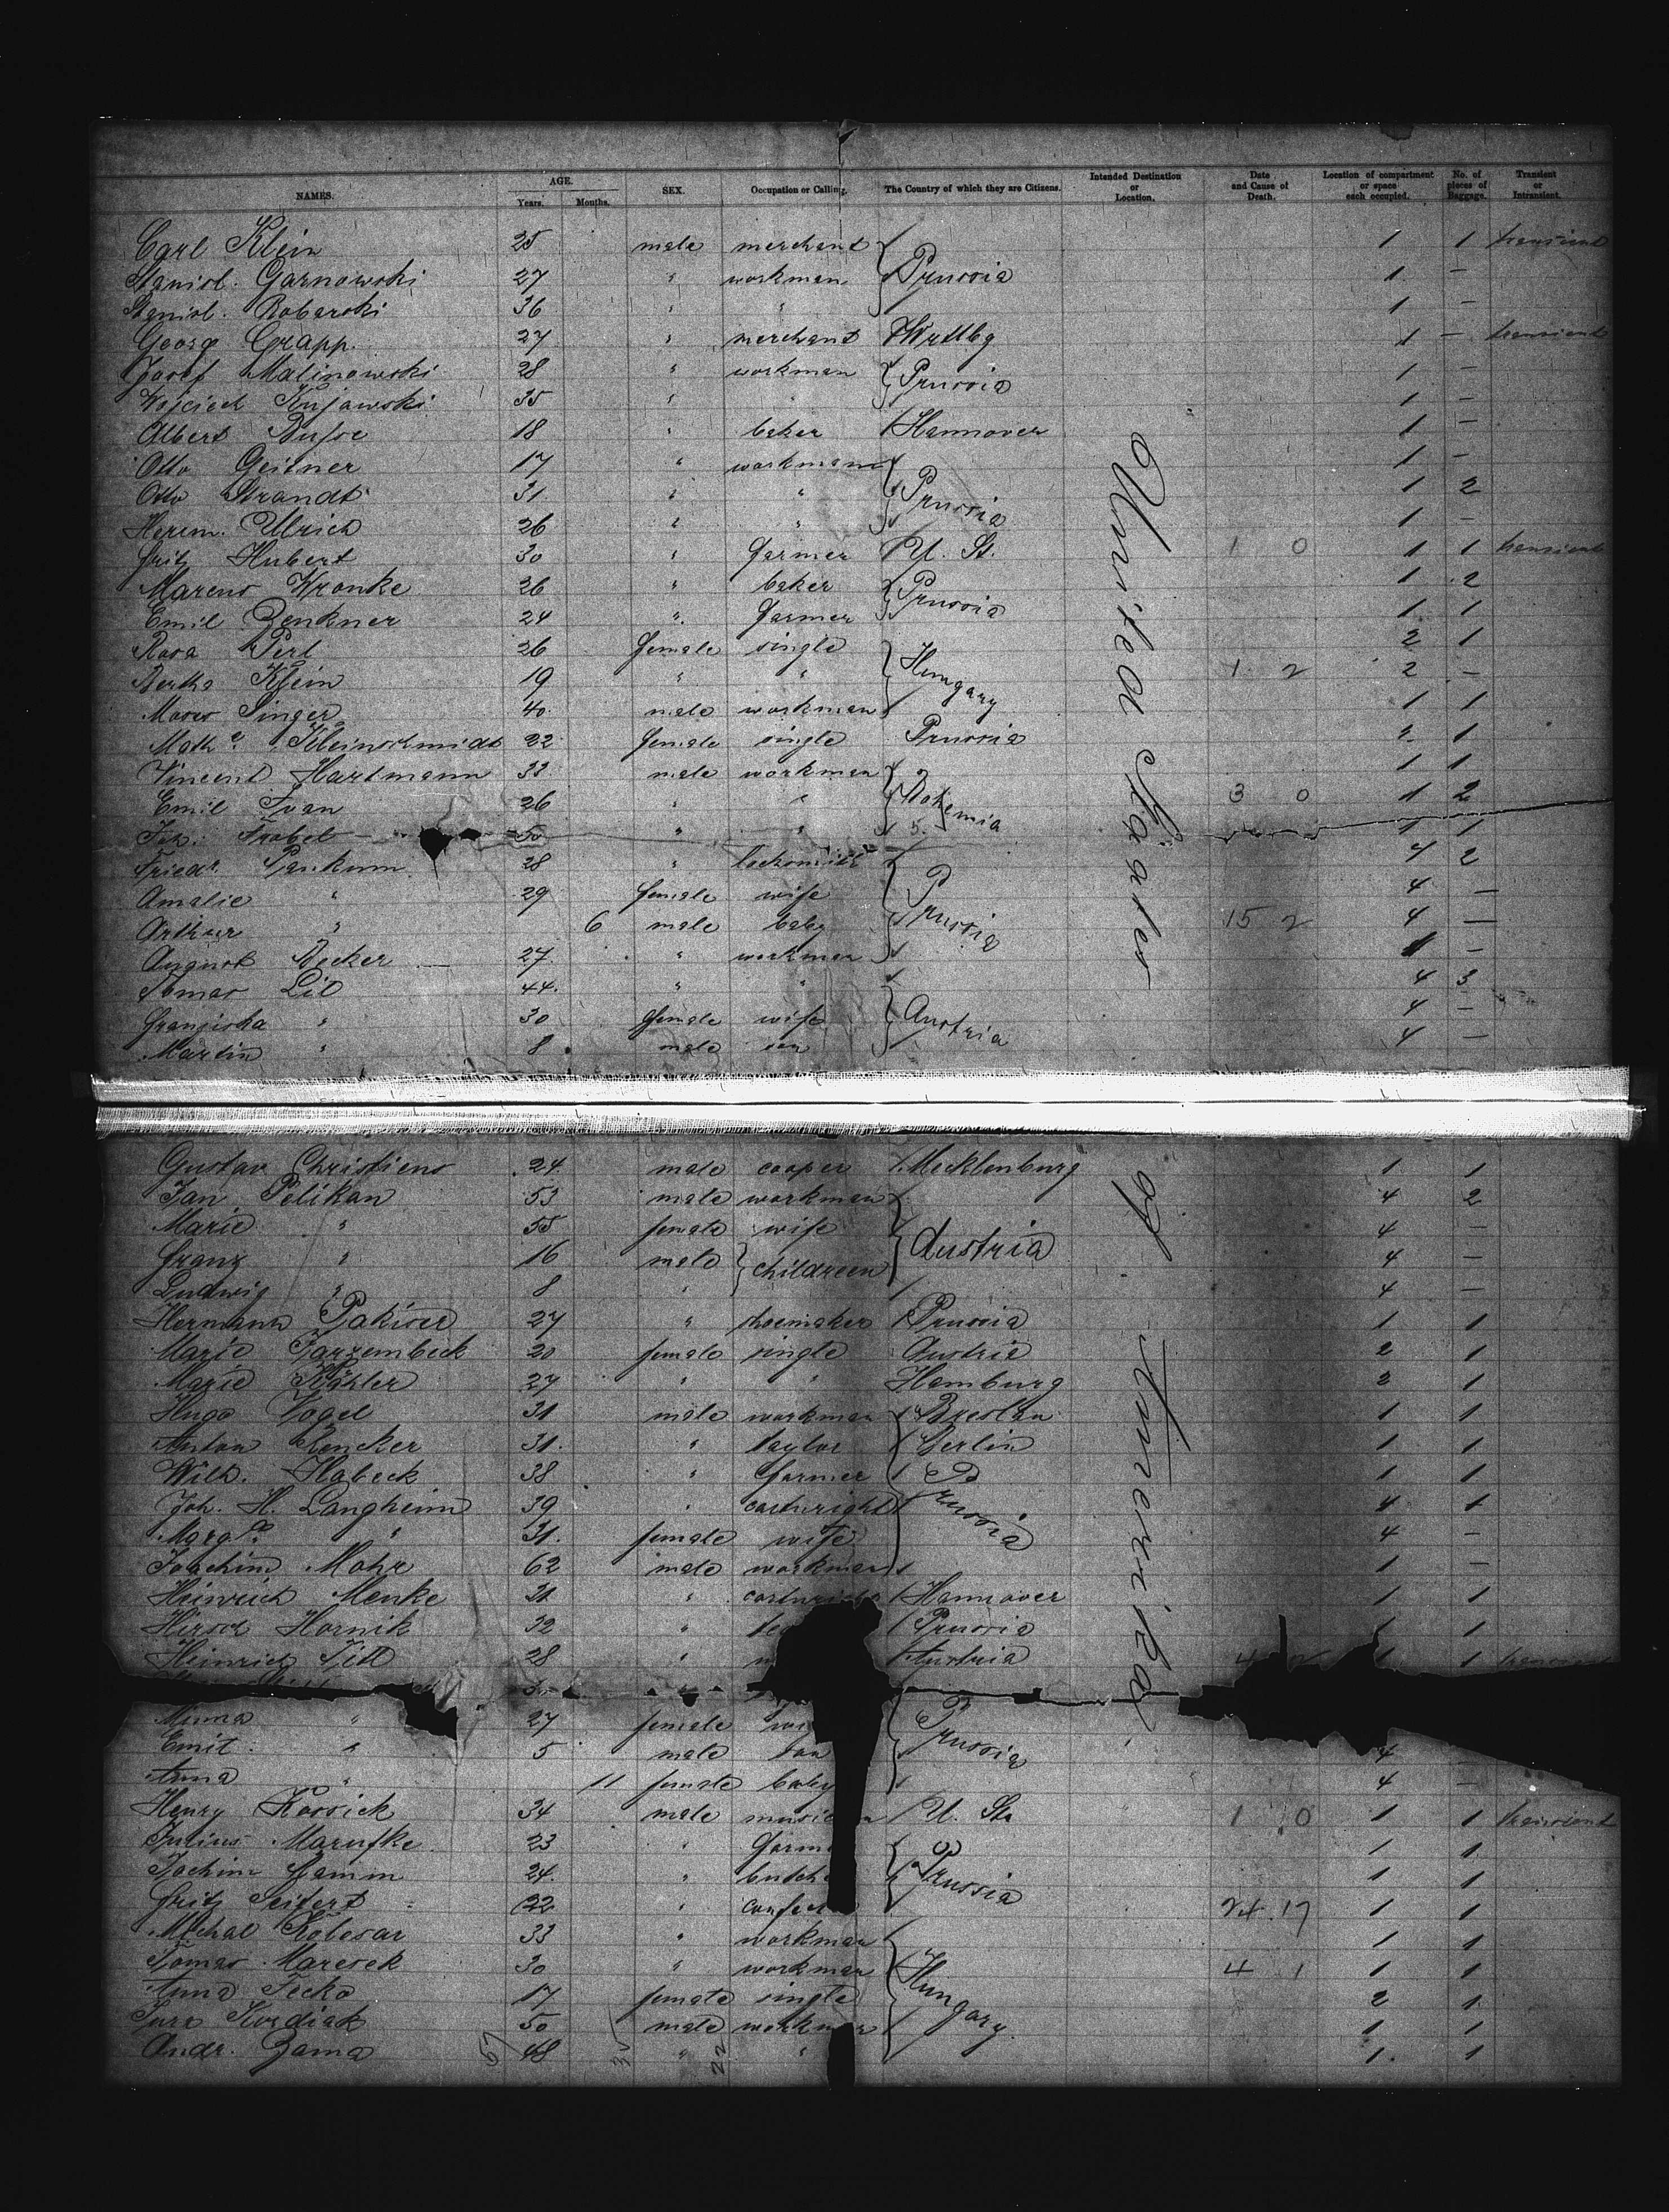 NAMES. AGE. Years. Months. SEX. Occupation or Calling. The Country of which they are Citizens. Intended Destination or Location. Date and Cause of Death. Location of compartment or space each occupied. No. of pieces of Baggage. Transient or Intransient.
Carl Klein 25 male merchant 1 1 transient
Stanisl. Garnowski 27 " workman Prussia 1 —
Stanisl. Robarski 36 " " 1 —
Georg Grapp. 27 " merchant Wrttbg 1 — transient
Josef Malinowski 28 " workman Prussia 1 —
Wojciech Kujawski 35 " " 1 —
Albert 18 " baker Hannover 1 —
Otto Geitner 17 " workman 1 —
Otto Strandt 31 " " Prussia 1 2
Herm. Ulrich 26 " " 1 —
Fritz Hubert 30 " farmer U. St. 1 0 1 1 transient
Wronke 26 " baker Prussia 1 2
Emil Zenkner 24 " farmer 1 1
Rosa Perl 26 female single 2 1
Bertha Klein 19 " " Hungary 1 2 2 —
Moses Singer 40 male workman 1 1
Mathe Kleinschmidt 22 female single Prussia 2 1
Vincent Hartmann 33 male workman 1 1
Emil Ivan 26 " " Bohemia 3 0 1 2
50 " " 1 1
Friedr. Pankum 28 " locksmith 4 2
Amalie " 29 female wife Prussia 4 —
Arthur " 6 male baby 15 2 4 —
August Becker 27 " workman 1 —
Tomas Lil 44 " " 4 3
Franziska " 30 female wife Austria 4 —
Martin " 8 male son 4 —
United States
Gustav Christiens 24 male cooper Mecklenburg 1 1
Jan Pelikan 53 male workman 4 2
Marie " 55 female wife Austria 4 —
Franz " 16 male children 4 —
Ludwig " 8 " 4 —
Hermann Pakiser 27 " shoemaker Prussia 1 1
Marie Jarzembeck 20 female single Austria 2 1
Marie Köhler 27 " " Hamburg 2 1
Hugo Vogel 31 male workman Breslau 1 1
Anton Rencker 31 " taylor Berlin 1 1
Wilh. Habeck 38 " farmer Prussia 1 1
Joh. H. Langheim 39 " cartwright 4 1
Marg. " 31 female wife 4 —
Joachim Mohr 62 male workman 1 —
Heinrich Menke 31 " Hannover 1 1
Hirsch Hornik 32 " Prussia 1 1
Heinrich Titl 28 " Austria 1 1 transient
Minna " 27 female Prussia
Emil " 5 male son 4 —
Anna " 11 female baby 4 —
Henry Kossick 34 male U. Sts 1 0 1 1 transient
Julius Marufke 23 " 1 1
Jochim Hamm 24 " Prussia 1 1
Fritz Seifert 22 " 24 17 1 1
Michal Kolesar 33 " workman 1 1
Tomas Maresek 30 " workman Hungary 4 1 1 1
Anna Fecko 17 female single 2 1
Jura Kordiak 50 male workman 1 1
Andr. Zama 48 " " 1 1
of America
57 35 22